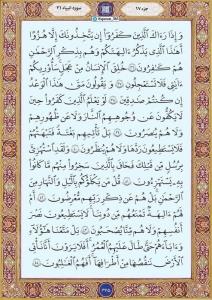 جزء ۱۷
سوره انبیاء ۲۱
وَإِذَا رَءَاكَ ٱلَّذِينَ كَفَرُوٓا۟ إِن يَتَّخِذُونَكَ إِلَّا هُزُوًا
أَهَٰذَا ٱلَّذِى يَذْكُرُ ءَالِهَتَكُمْ وَهُم بِذِكْرِ ٱلرَّحْمَٰنِ
هُمْ كَٰفِرُونَ ۝٣٦ خُلِقَ ٱلْإِنسَٰنُ مِنْ عَجَلٍ سَأُو۟رِيكُمْ
ءَايَٰتِى فَلَا تَسْتَعْجِلُونِ ۝٣٧ وَيَقُولُونَ مَتَىٰ هَٰذَا ٱلْوَعْدُ
إِن كُنتُمْ صَٰدِقِينَ ۝٣٨ لَوْ يَعْلَمُ ٱلَّذِينَ كَفَرُوا۟ حِينَ
لَا يَكُفُّونَ عَن وُجُوهِهِمُ ٱلنَّارَ وَلَا عَن ظُهُورِهِمْ
وَلَا هُمْ يُنصَرُونَ ۝٣٩ بَلْ تَأْتِيهِم بَغْتَةً فَتَبْهَتُهُمْ
فَلَا يَسْتَطِيعُونَ رَدَّهَا وَلَا هُمْ يُنظَرُونَ ۝٤٠ وَلَقَدِ ٱسْتُهْزِئَ
بِرُسُلٍ مِّن قَبْلِكَ فَحَاقَ بِٱلَّذِينَ سَخِرُوا۟ مِنْهُم مَّا كَانُوا۟
بِهِۦ يَسْتَهْزِءُونَ ۝٤١ قُلْ مَن يَكْلَؤُكُم بِٱلَّيْلِ وَٱلنَّهَارِ مِنَ
ٱلرَّحْمَٰنِ بَلْ هُمْ عَن ذِكْرِ رَبِّهِم مُّعْرِضُونَ ۝٤٢ أَمْ
لَهُمْ ءَالِهَةٌ تَمْنَعُهُم مِّن دُونِنَا لَا يَسْتَطِيعُونَ نَصْرَ
أَنفُسِهِمْ وَلَا هُم مِّنَّا يُصْحَبُونَ ۝٤٣ بَلْ مَتَّعْنَا هَٰٓؤُلَآءِ
وَءَابَآءَهُمْ حَتَّىٰ طَالَ عَلَيْهِمُ ٱلْعُمُرُ أَفَلَا يَرَوْنَ أَنَّا نَأْتِى
ٱلْأَرْضَ نَنقُصُهَا مِنْ أَطْرَافِهَآ أَفَهُمُ ٱلْغَٰلِبُونَ ۝٤٤
۳۲۵